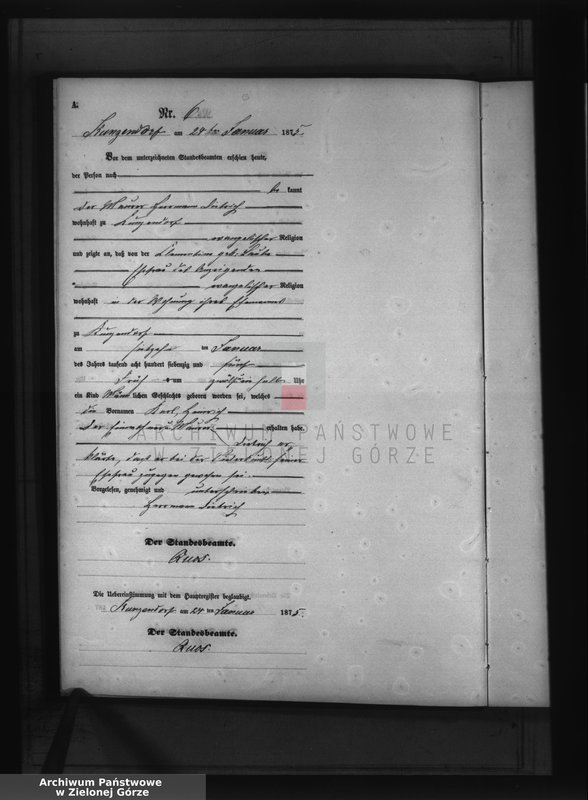 A.
Nr. 6
Kunzendorf am 24ten Januar 1875.
Vor dem unterzeichneten Standesbeamten erschien heute,
der Person nach
bekannt
der Maurer Herrmann Dietrich
wohnhaft zu Kunzendorf
evangelischer Religion
und zeigte an, daß von der Klementine geb.
Ehefrau des Anzeigenden
evangelischer Religion
wohnhaft in der Wohnung ihres Ehemannes
zu Kunzendorf
am ten Januar
des Jahres tausend acht hundert siebenzig und fünf
Früh um halb Uhr
ein Kind Männlichen Geschlechts geboren worden sei, welches
die Vornamen Karl, Heinrich
erhalten habe.
Der Maurer
Dietrich er-
klärte, daß er bei der Niederkunft seiner
Ehefrau zugegen gewesen sei.
Vorgelesen, genehmigt und unterschrieben
Herrmann Dietrich
Der Standesbeamte.
Die Uebereinstimmung mit dem Hauptregister beglaubigt.
Kunzendorf am 24 ten Januar 1875.
Der Standesbeamte.
ARCHIWUM PAŃSTWOWE
W ZIELONEJ GÓRZE
Archiwum Państwowe
w Zielonej Górze